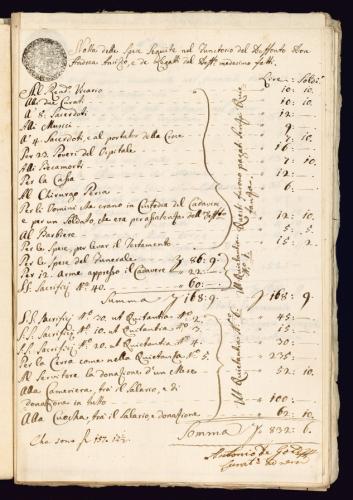 Notta delle Spese Seguite nel Funerario del Deffonto Don
Andrea e de Legatti dal Deff.to medesimo fatti.
Lire : Soldi
Al Rend.o Vicario 10: 10.
Alli due Curati 10: 10.
A' 8. Sacerdoti 12: 10.
Alli Musici 9:
A' 4. Sacerdoti, e al portator della Croce 7: 10.
Per 22. Poveri del Ospitale 16:
Alli Beccamorti 7: 10.
Per la Cassa 12:
Al Chirurgo Peria 6:
Per li Uomini che erano in Custodia del Cadavere
e per un Soldato, che era per assistenza del Deffto 12: 10.
Al Barbiere 5: 5.
Per le Spese, per levar il Testamento 15: 2.
Per le Spese del Funerale 86: 9.
Per 12. Arme appresso il Cadavere 22:
SS: Sacrifizj N.o 40. 60:
Somma 168: 9. 168: 9.
S.S. Sacrifizj N.o 30. ut Quitantia N.o 2. 45:
S.S. Sacrifizj N.o 10. ut Quitantia N.o 3. 15:
S.S. Sacrifizj N.o 20. ut Quitantia N.o 4. 30:
Per la Cera come nella Quietantia N.o 5. 235:
Al Servitore la donazione d'un Mese 52: 10.
Alla Cameriera, frà il Salario, e di
donazione in tutto 100:
Alla Cuocha, frà il Salario, e donazione 62: 10.
Somma 832: 6.
Che sono f 157.
Antonio de